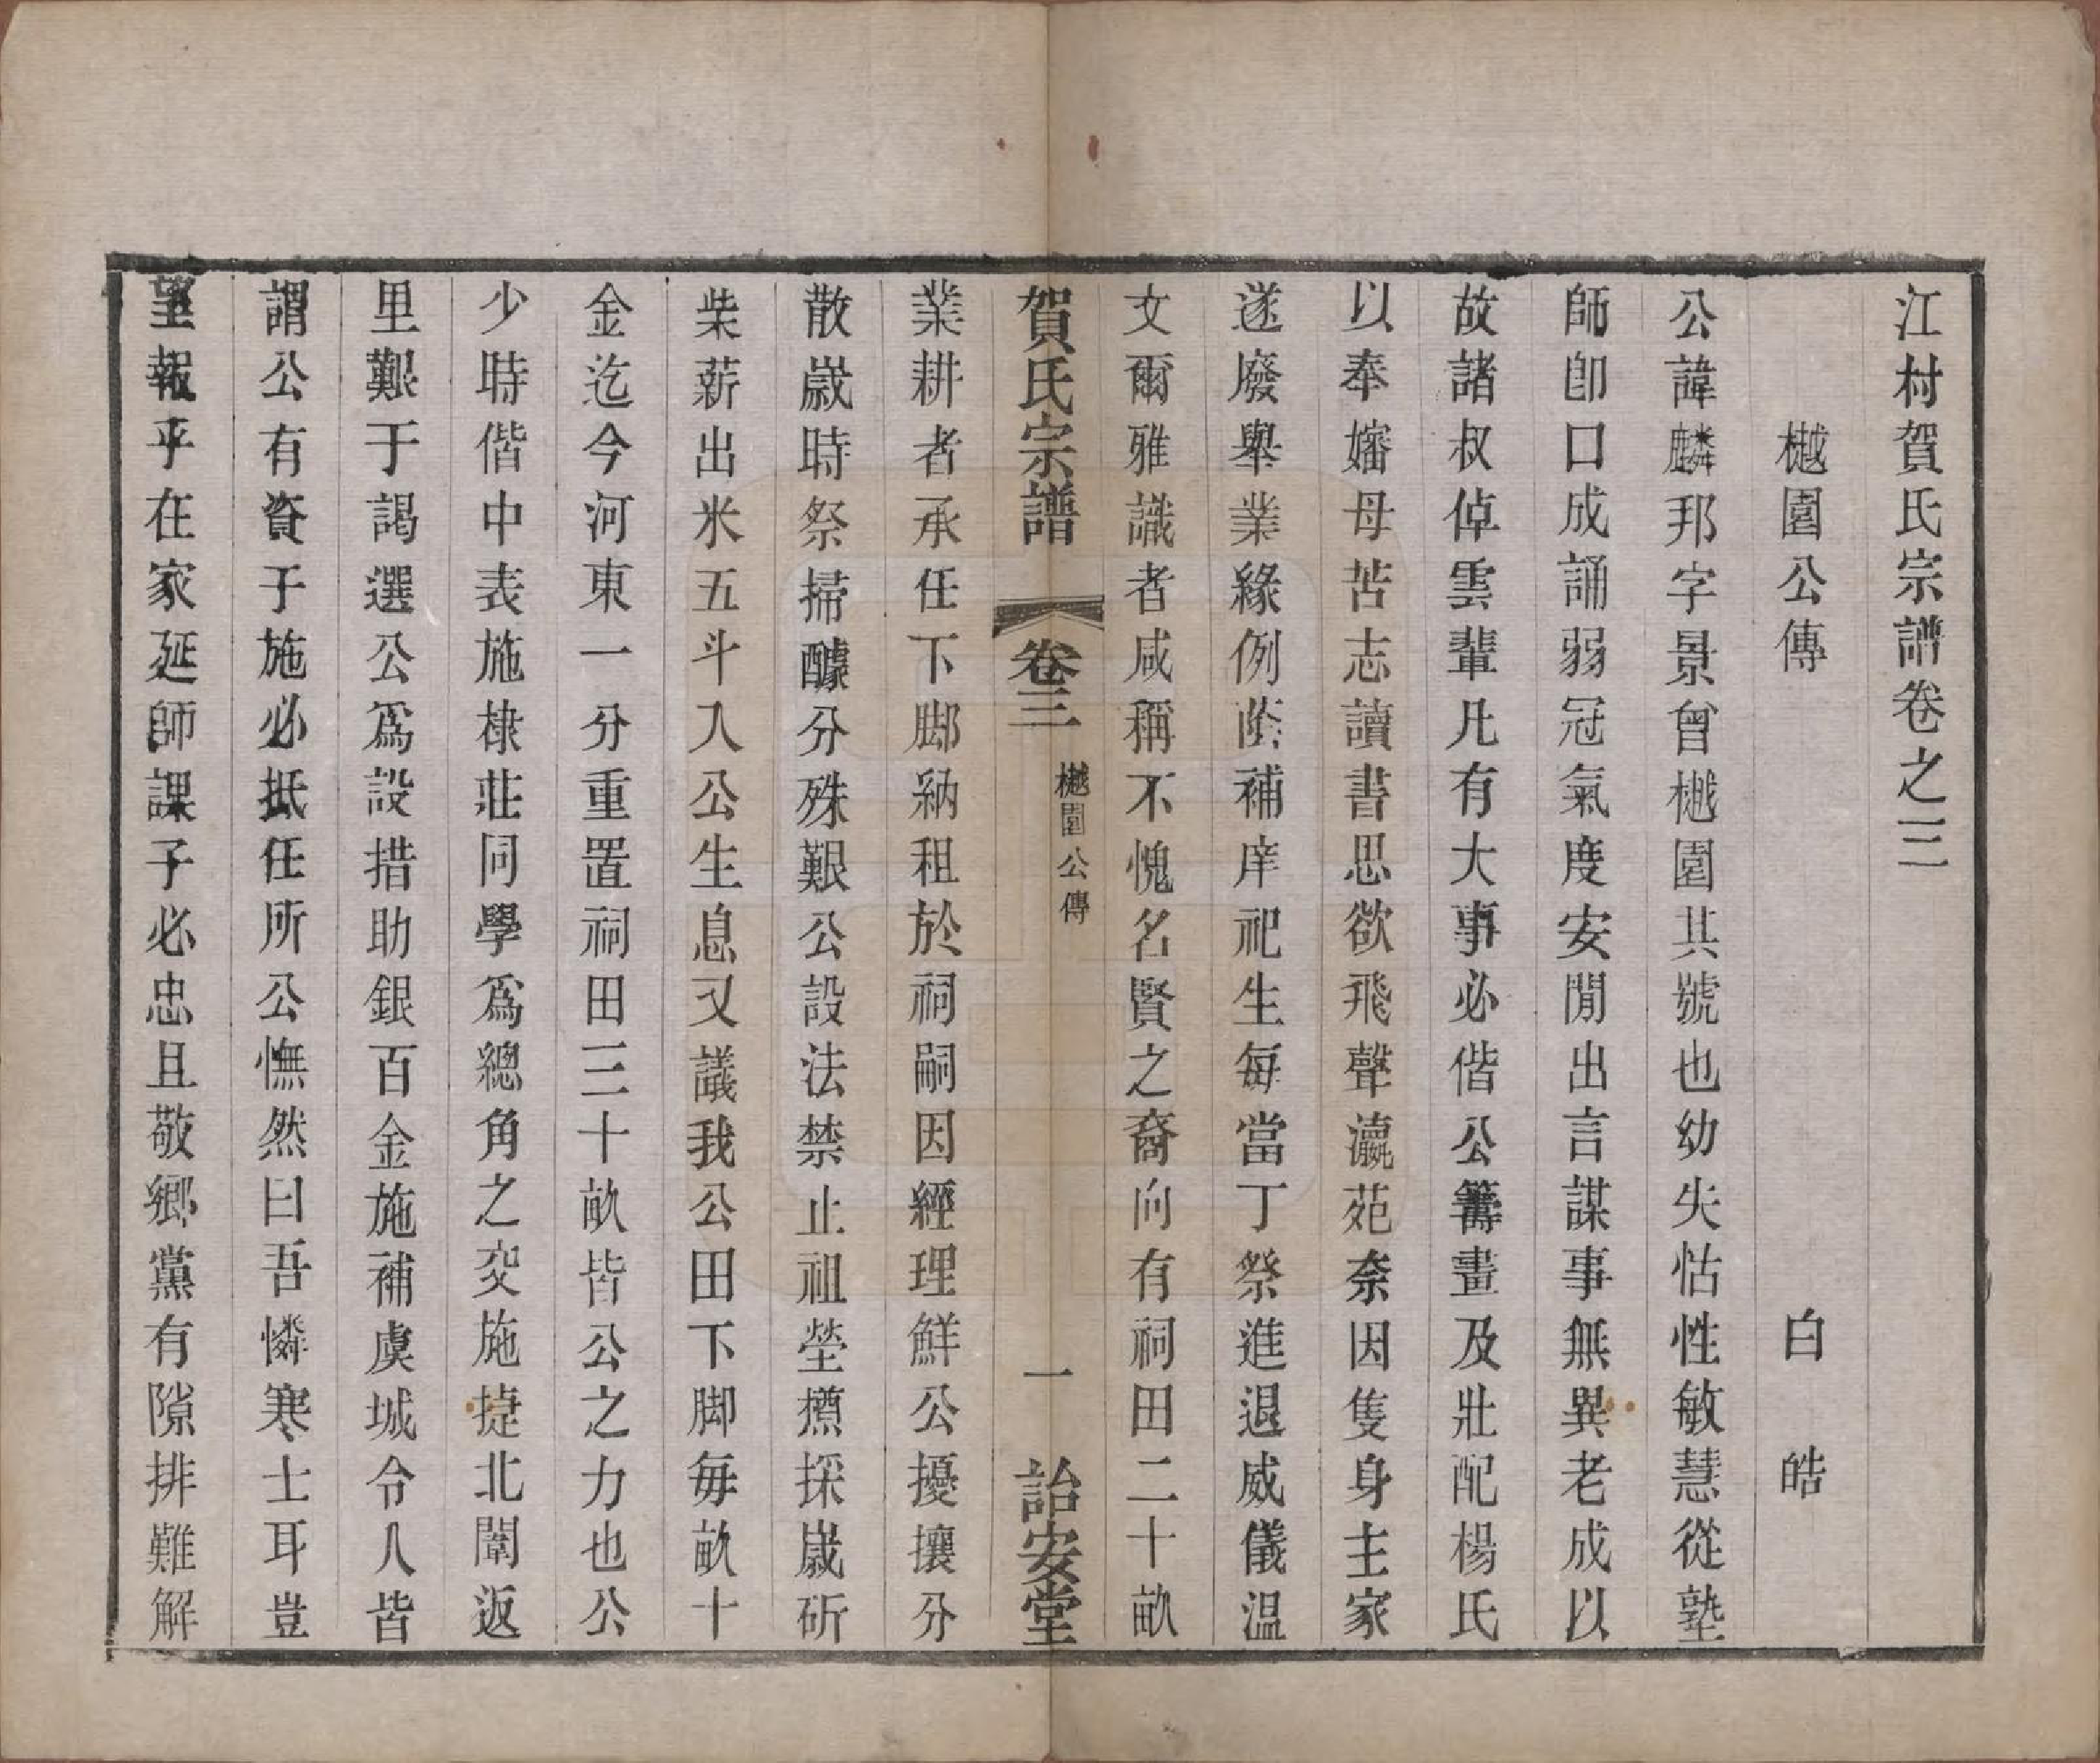 江村賀氏宗譜卷之三
樾園公傳　白　皓
公諱麟邦字景曾樾園其號也幼失怙性敏慧從塾
師卽口成誦弱冠氣度安閒出言謀事無異老成以
故諸叔倬雲輩凡有大事必偕公籌畫及壯配楊氏
以奉孀母苦志讀書思欲飛聲瀛苑奈因隻身主家
遂廢舉業緣例蔭補庠祀生每當丁祭進退威儀温
文爾雅識者咸稱不愧名賢之裔向有祠田二十畝
賀氏宗譜　卷三　樾園公傳　一　詒安堂
業耕者承任下脚納租於祠嗣因經理鮮公擾攘分
散嵗時祭掃醵分殊艱公設法禁止祖塋樵採嵗斫
柴薪出米五斗入公生息又議我公田下脚每畝十
金迄今河東一分重置祠田三十畝皆公之力也公
少時偕中表施棣莊同學爲總角之交施捷北闈返
里艱于謁選公爲設措助銀百金施補虞城令人皆
謂公有資于施必抵任所公憮然曰吾憐寒士耳豈
望報乎在家延師課子必忠且敬鄉黨有隙排難解